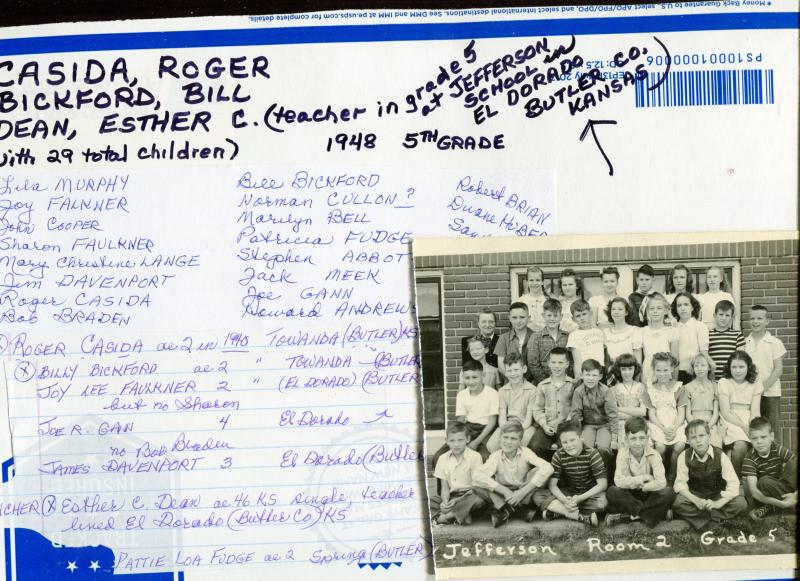 * Money Back Guarantee to U.S., select APO/FPO/DPO, and select International destinations. See DMM and IMM at pe.usps.com for complete details.
PS10001000006
EP13F
OD: 12.5
CASIDA, ROGER
BICKFORD, BILL
DEAN, ESTHER C. (teacher in grade 5
at JEFFERSON
SCHOOL in
EL DORADO
BUTLER CO.
KANSAS)
with 29 total children)
1948 5TH GRADE
Lila MURPHY
Joy FALKNER
John COOPER
Sharon FAULKNER
Mary Christine LANGE
Jim DAVENPORT
Roger CASIDA
Bob BRADEN
Bill BICKFORD
Norman CULLON?
Marilyn BELL
Patricia FUDGE
Stephen ABBOT
Jack MEEK
Joe GANN
Howard ANDREWS
Robert BRIAN
Duane HUBE
San
ROGER CASIDA ae 2 in 1940 TOWANDA (BUTLER) KS
(X) BILLY BICKFORD ae 2 " TOWANDA (BUTLER
JOY LEE FAULKNER 2 " (EL DORADO) (BUTLER
but no Sharon
JOE R. GAN 4 El Dorado
no Bob Braden
JAMES DAVENPORT 3 El Dorado (Butle
CHER (X) Esther C. Dean ae 46 KS single teacher
lined El Dorado (Butler Co) KS
PATTIE LOA FUDGE ae 2 Spring (BUTLER)
INSURED
TRACKED
Jefferson Room 2 Grade 5